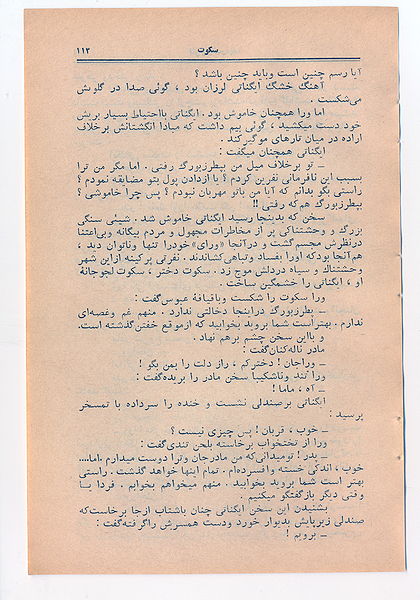 سکوت
۱۱۳
آیا رسم چنین است وباید چنین باشد ؟
آهنگ خشگ ایگناتی لرزان بود ، گوئی صدا در گلویش
می‌شکست .
اما ورا همچنان خاموش بود . ایگناتی بااحتیاط بسیار بریش
خود دست میکشید ، گوئی بیم داشت که مبادا انگشتانش برخلاف
اراده در میان تارهای موگیرکند .
ایگناتی همچنان میگفت :
ــ تو برخلاف میل من بپطرزبورگ رفتی . اما مگر من ترا
بسبب این نافرمانی نفرین کردم ؟ یا ازدادن پول بتو مضایقه نمودم ؟
راستی بگو بدانم که آیا من باتو مهربان نبودم ؟ پس چرا خاموشی ؟
بپطرزبورگ هم‌که رفتی !!
سخن که بدینجا رسید ایگناتی خاموش شد . شیئی سنگی
بزرگ و وحشتناکی پر از مخاطرات مجهول و مردم بیگانه وبی‌اعتنا
درنظرش مجسم گشت و درآنجا «ورای» خودرا تنها وناتوان دید ،
هم آنجا بودکه اورا بفساد وتباهی کشاندند . نفرتی پرکینه ازاین شهر
وحشتناك و سیاه دردلش موج زد . سکوت دختر ، سکوت لجوجانهٔ
او ، ایگناتی را خشمگین ساخت .
ورا سکوت را شکست وباقیافهٔ عبوس گفت :
ــ پطرزبورگ دراینجا دخالتی ندارد . منهم غم وغصه‌ای
ندارم . بهتراست شما بروید بخوابید که ازموقع خفتن گذشته است.
و بااین سخن چشم برهم نهاد .
مادر ناله‌کنان گفت :
ــ وراجان ! دخترکم ، راز دلت را بمن بگو !
ورا تند وناشکیبا سخن مادر را بریده گفت :
ــ آه ، ماما !
ایگناتی برصندلی نشست و خنده را سرداده با تمسخر
پرسید :
ــ خوب ، قربان ! پس چیزی نیست ؟
ورا از تختخواب برخاسته بلحن تندی گفت :
ــ پدر ! تومیدانی‌که من مادرجان وترا دوست میدارم .اما....
خوب ، اندکی خسته وافسرده‌ام . تمام اینها خواهد گذشت . راستی
بهتر است شما بروید بخوابید . منهم میخواهم بخوابم . فردا یا
وقتی دیگر بازگفتگو میکنیم .
بشنیدن این سخن ایگناتی چنان باشتاب ازجا برخاست‌که
صندلی زیرپایش بدیوار خورد ودست همسرش راگرفته گفت :
ــ برویم !